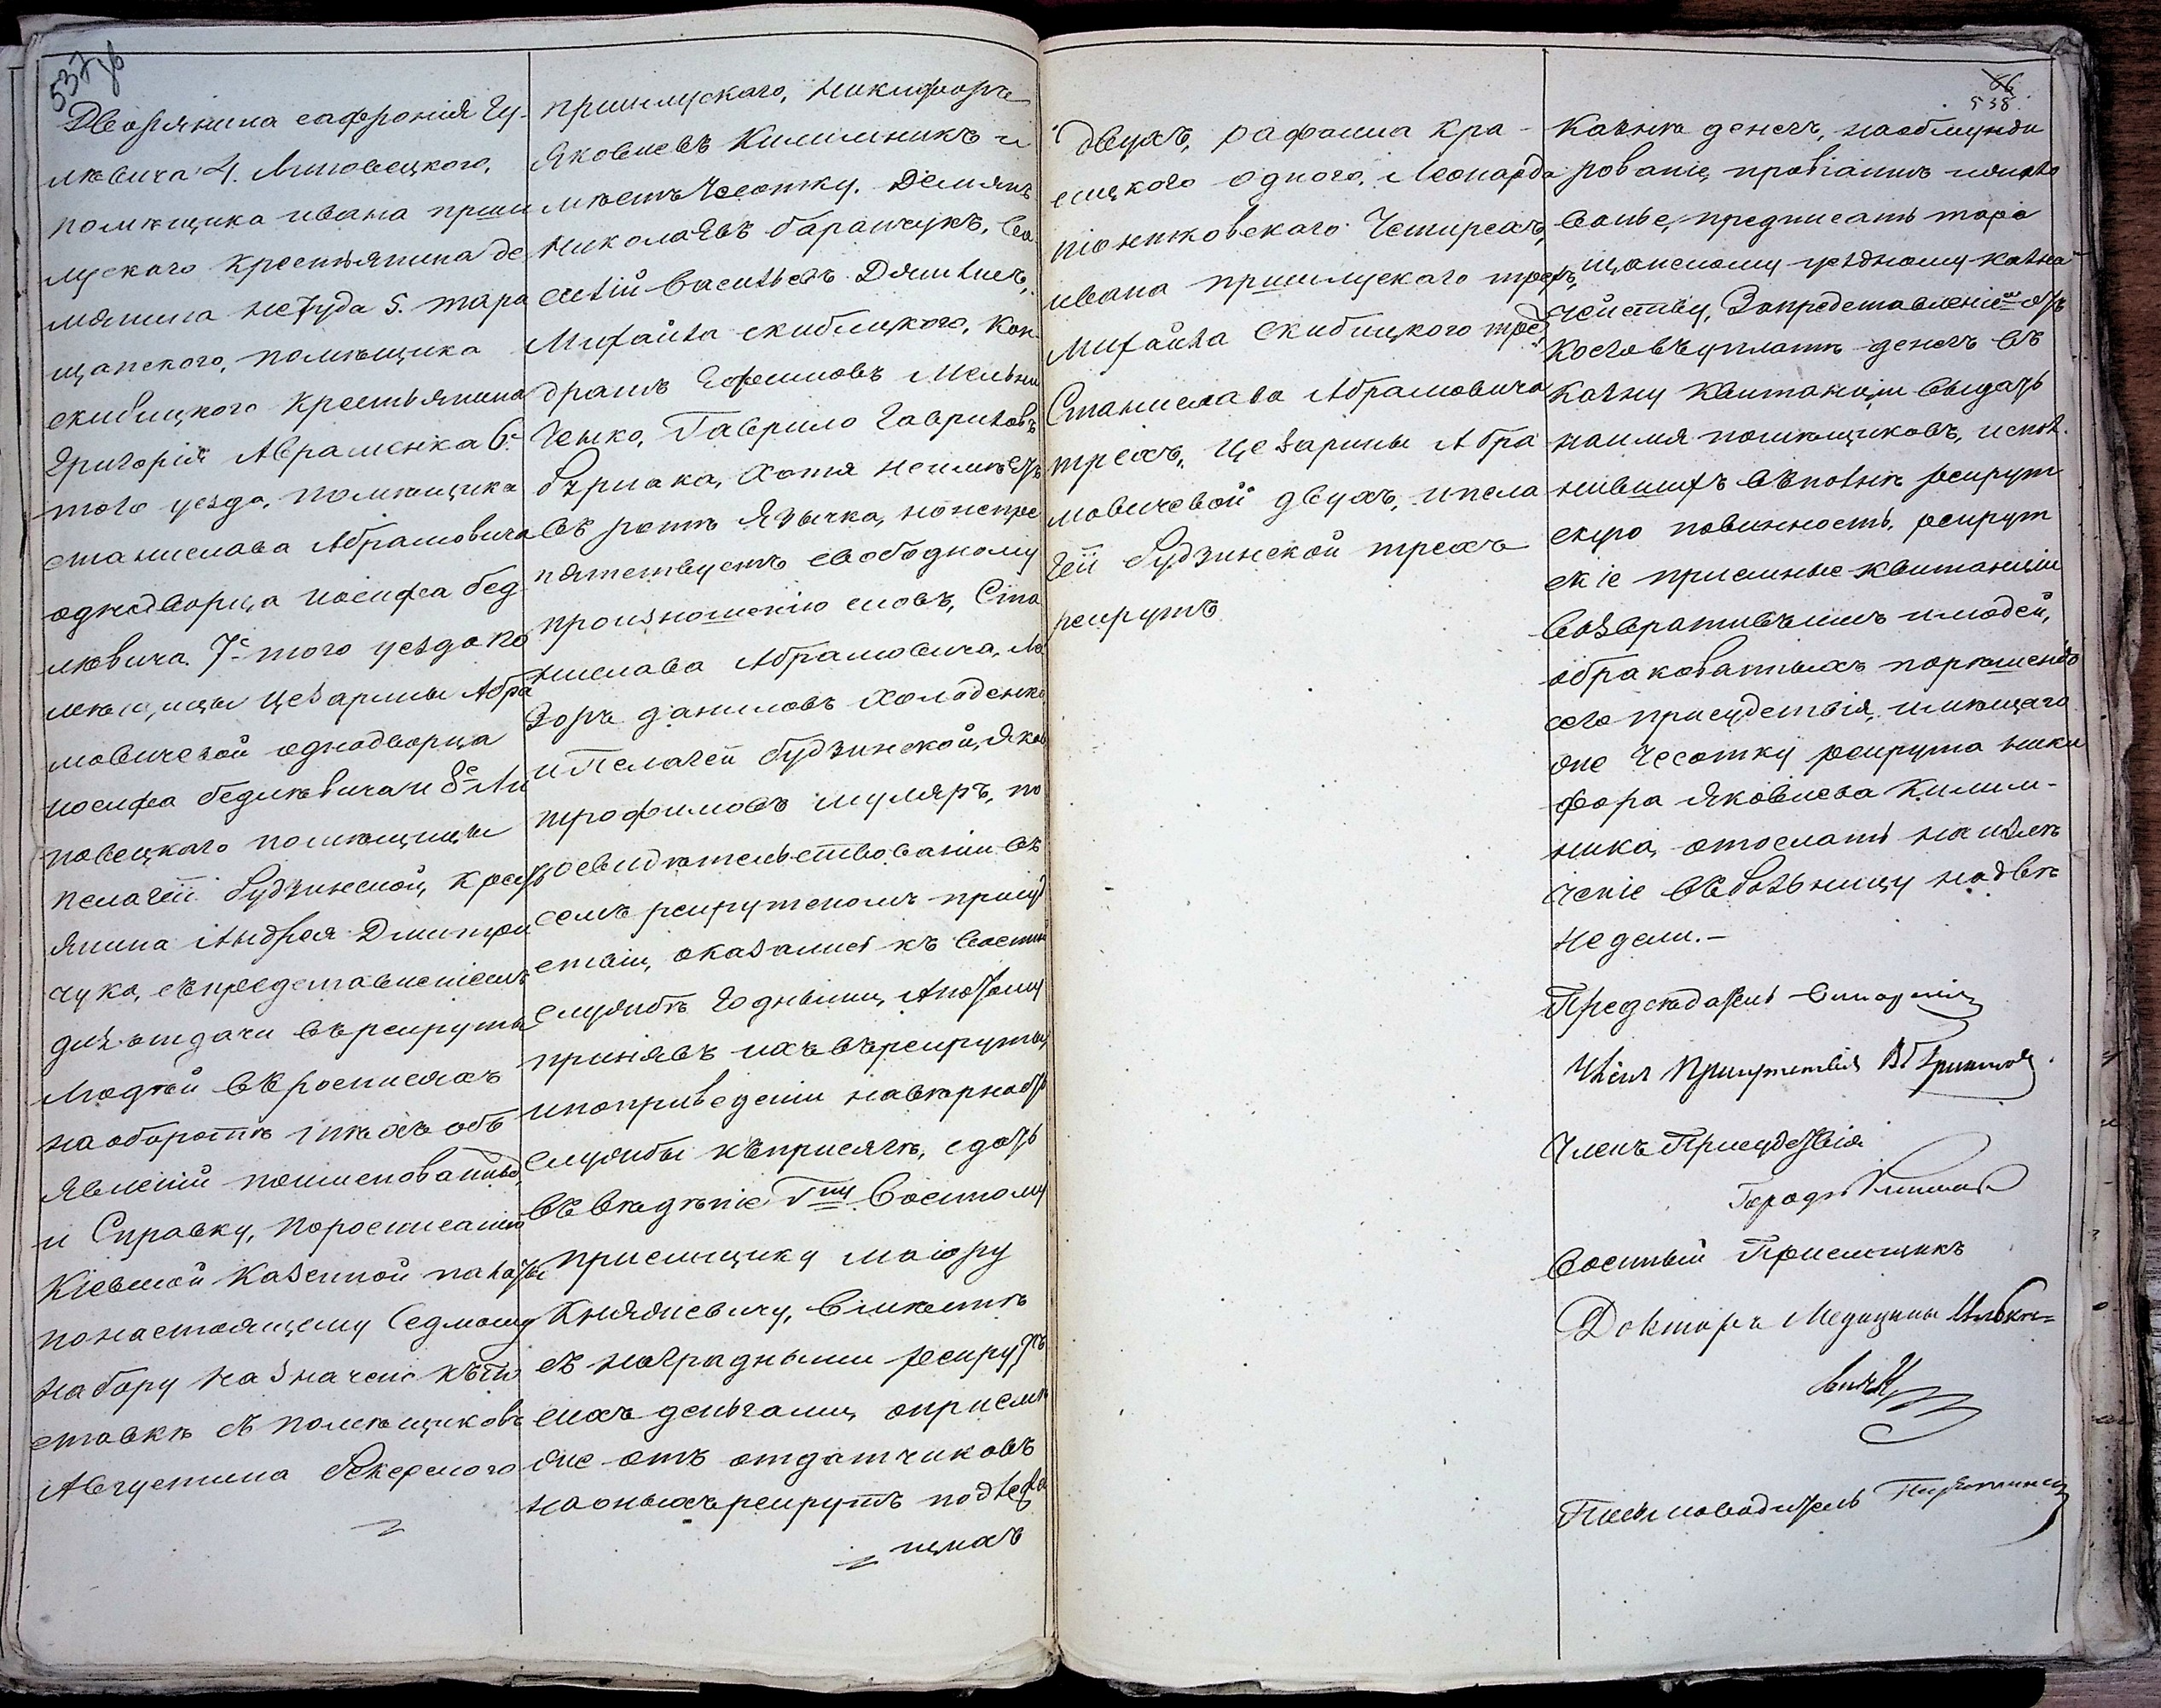 537 об
Дворянина сафронія Гу-
лювича 4. Липовецкого,
помѣщика ивана прши
луского крестьянина де
мянина негуда 5. тара
щанского, помѣщика
скибицкого крестьянина
Григорія Авраменка 6.
того уезда, помѣщика
станислава Абрамовича
однодворца иосифа бед
лювича 7е того уезда по
мѣщицы цезарины Абра
мовичевой однодворца
иосифа бедлювича и 8е Ли
повецкаго помѣщицы
пелагеи будзинской, крест
янина Андрея Дмитри
чука, съ представленіемъ
для отдачи въ рекруты
людей въ росписяхъ
на оборотѣ ихъ объ
явленій поименованныхъ
и Справку, по росписанію
Кіевской Казенной палаты
по настоящему Седмому
набору назначено къ по
ставкѣ съ помѣщиковъ
Августина
пршилускаго, никифоръ
Яковлевъ Килимникъ и
мѣетъ чесотку. Демянъ
Николаевъ баранчукъ, Ева
стій Васильевъ
Михайла скибицкого, Кон
дратъ Ефимовъ Мельни
ченко, Гаврило Гавриловъ
бурлака, хотя неимѣетъ
въ ротѣ язычка, но непре
пятствуетъ свободному
произношенію словъ, Ста
нислава Абрамовича, Ла
зоръ даниловъ Холоденко
и Пелагеи будзинской, Яковъ
трофимовъ муляръ, по
освидѣтельствованіи въ
семъ рекрутскомъ присуд
ствіи, оказались къ военной
службѣ годными, а потому
принявъ ихъ въ рекруты,
и по приведеніи на вѣрность
службы къ присягѣ, сдать
въ вѣденіе Гну Военному
приемщику маіору
Княжевичу, вмѣстѣ
съ наградными рекрут
скихъ деньгами, о приемѣ
же отъ отдатчиковъ
на оныхъ рекрутъ подлежа
щихъ
66
538.
двухъ, рафаила кра-
сицкого одного, Леонарда
піонтковского четырехъ,
ивана пршилускаго трехъ,
Михайла Скибицкого трехъ,
Станислава Абрамовича
трехъ, цезарины Абра
мовичевой двухъ, и пела
геи будзинской трехъ
рекрутъ
Казнѣ денегъ, на обмунди
рованіе, провіантъ и жало
ванье, предписать тара
щанскому уездному казна
чейству, За представленіемъ от
косговъ уплатѣ денегъ въ
казну квитанціи выдать
наимя помѣщиковъ, испол.
нившихъ въ полнѣ рекрут
скую повинность, рекрут
скіе приемные квитанціи
Возвративъ имъ и людей,
обракованныхъ по рѣшенію
сего присудствія, имѣющаго
же чесотку рекрута ники
фора Яковлева Килим-
ника, отослать на излѣ
ченіе въ больницу на двѣ
недели.-
Предсѣдатель
Членъ Присутствія
Членъ Присудствія
Военный Приемщикъ
Докторъ Медицины
Письмоводитель